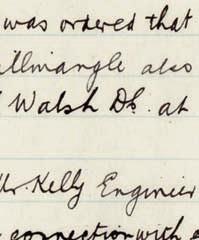 was ordered that
also
Walsh Dr. at
Mr. Kelly Engineer
connection with